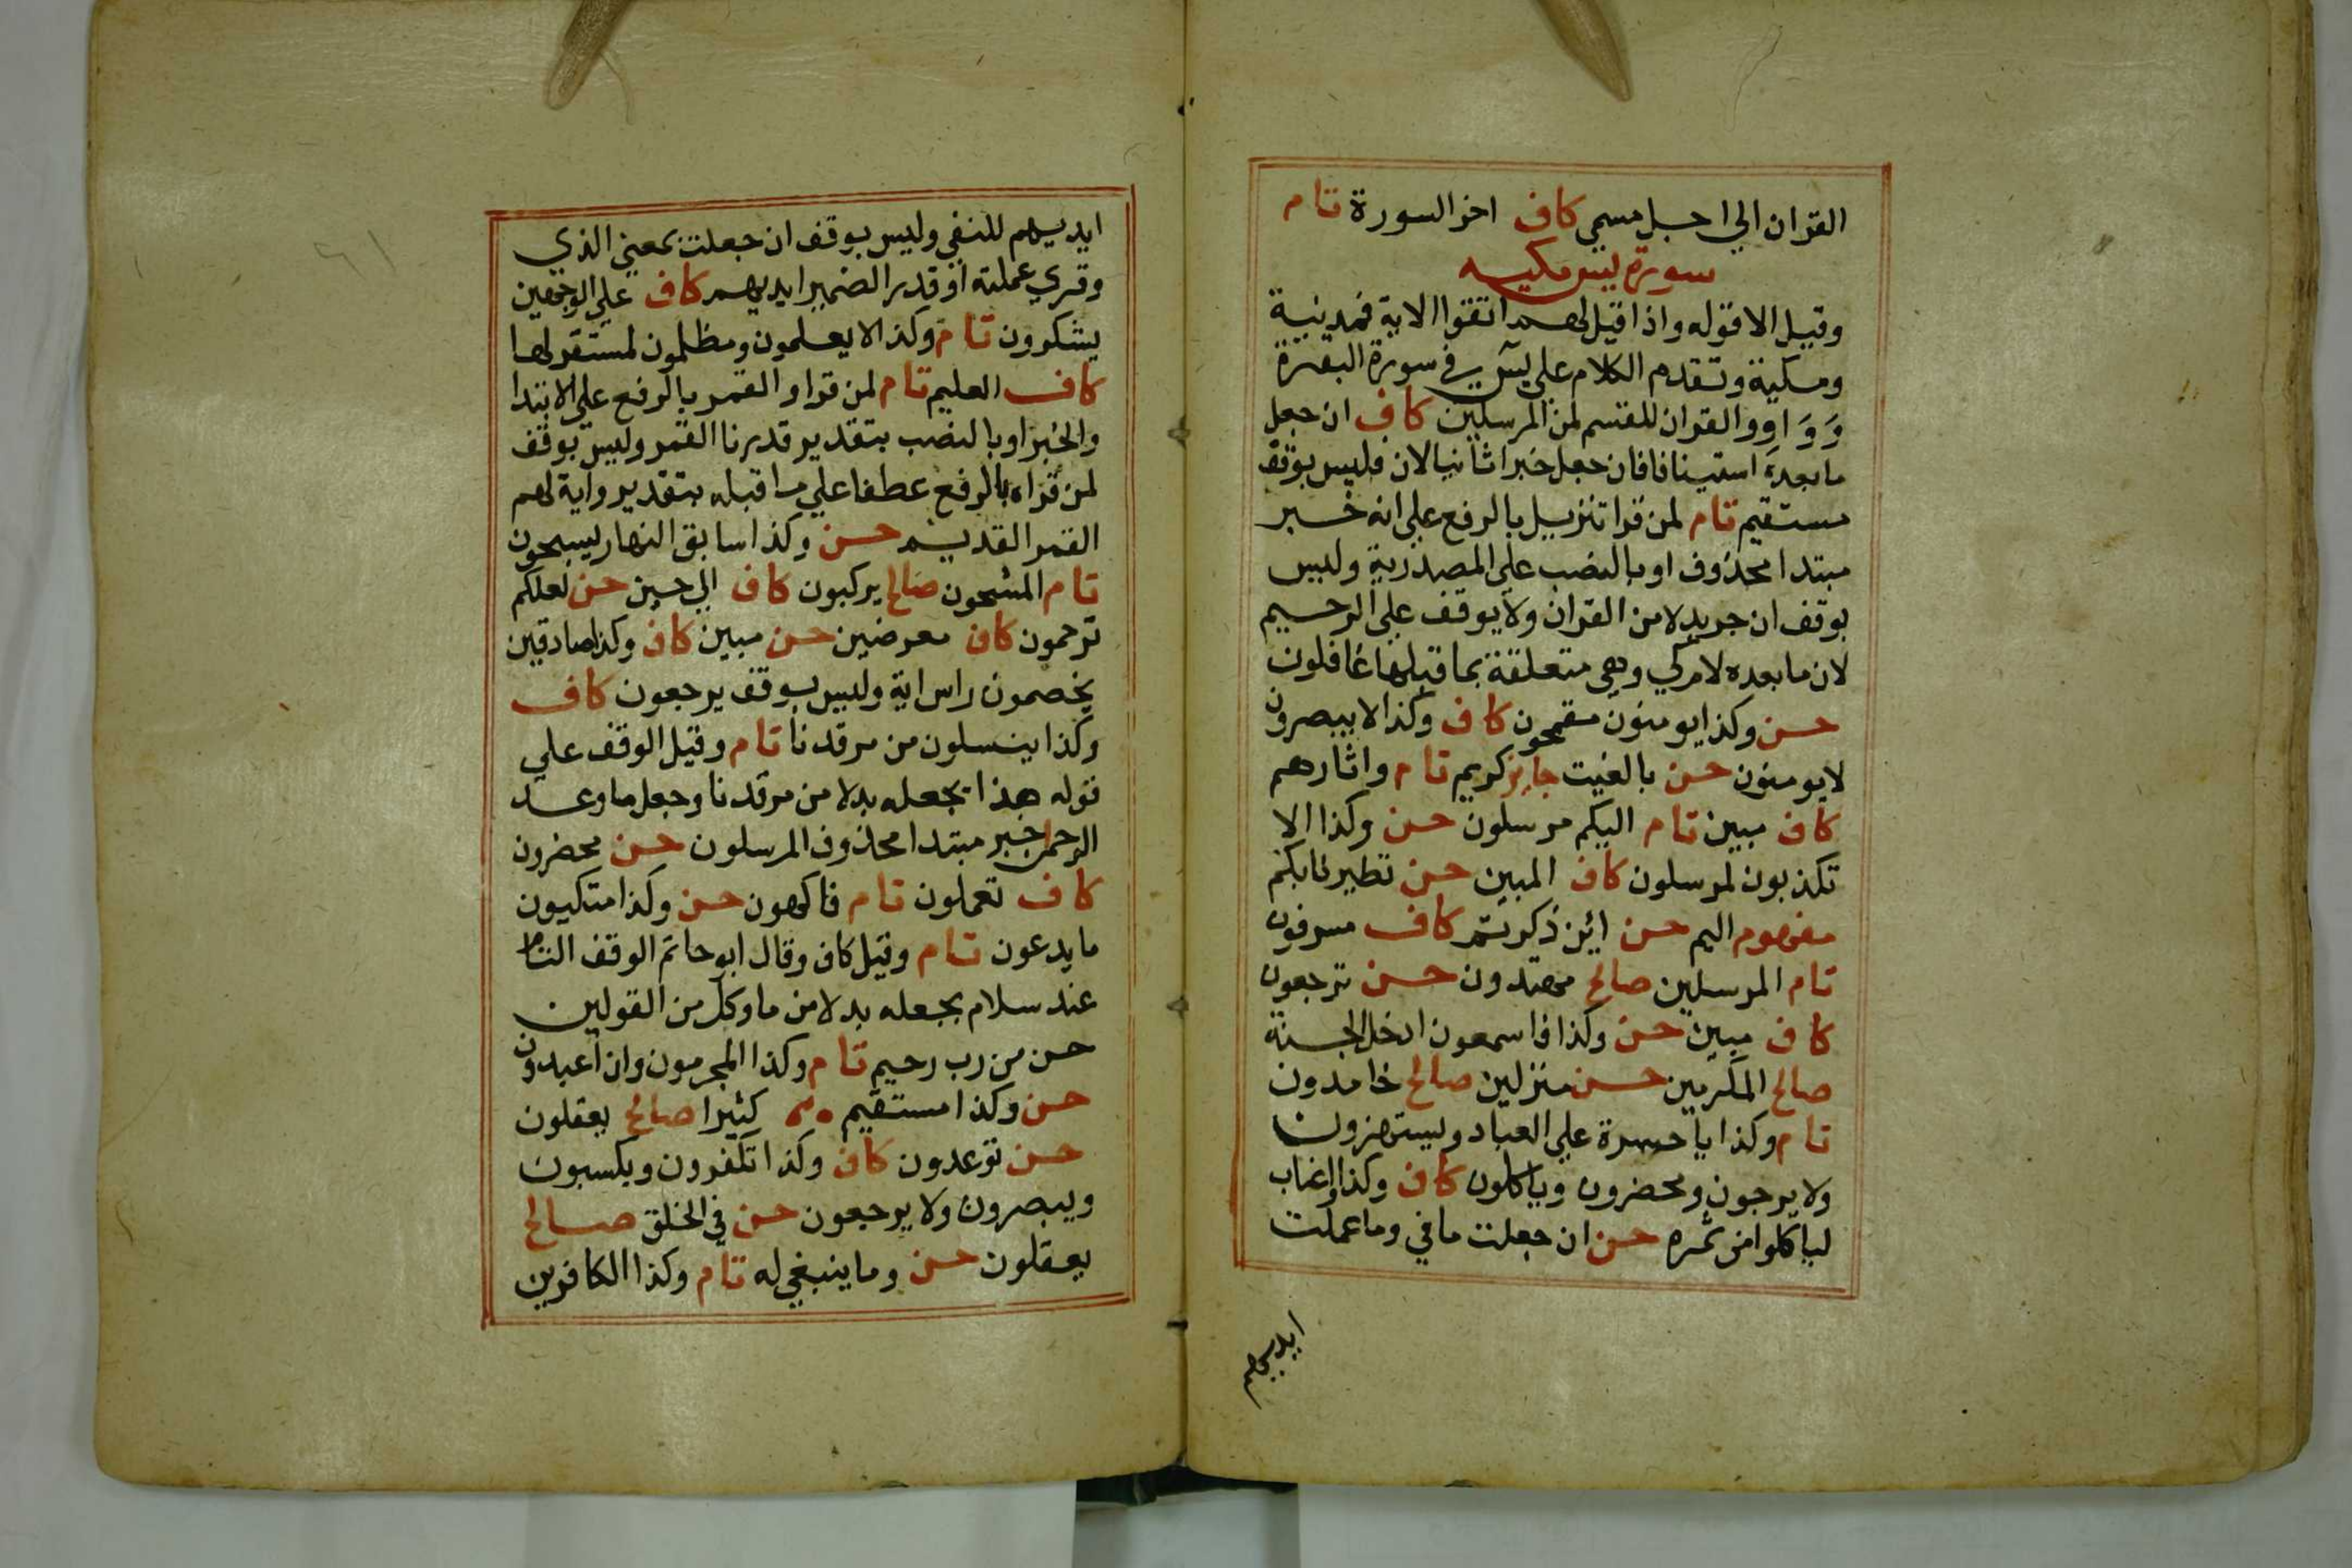 القران الي اجل مسمي كاف اخر السورة تام
سورة يس مكيه
وقيل الا قوله واذا قيل لهم اتقوا الاية فمدنية
ومكية وتقدم الكلام علي يس في سورة البقرة
وَ وَ او والقران للقسم لمن المرسلين كاف ان جعل
ما بعده استينافا فان جعل خبرا ثانيا لان فليس بوقف
مستقيم تام لمن قرا تنزيل بالرفع علي انه خبر
مبتدا محذوف او بالنصب علي المصدرية وليس
بوقف ان جر بدلا من القران ولا يوقف علي الرحيم
لان ما بعده لام كي وهي متعلقة بما قبلها غافلون
حسن وكذا يومنون مقمحون كاف وكذا لا يبصرون
لا يومنون حسن بالغيب جايز كريم تام واثارهم
كاف مبين تام اليكم مرسلون حسن وكذا الا
تكذبون لمرسلون كاف المبين حسن تطيرنا بكم
مفهوم اليم حسن ائن ذكرتم كاف مسرفون
تام المرسلين صالح مهتدون حسن ترجعون
كاف مبين حسن وكذا فاسمعون ادخل الجنة
صالح المكرمين حسن منزلين صالح خامدون
تام وكذا يا حسرة علي العباد ويستهزون
ولا يرجون ومحضرون وياكلون كاف وكذا واعناب
لياكلوا من ثمره حسن ان جعلت ما في وما عملت
ايديهم
ايديهم للنفي وليس بوقف ان جعلت بمعني الذي
وقري عملته او قدر الضمير ايديهم كاف علي الوجهين
يشكرون تام وكذا لا يعلمون ومظلمون لمستقر لها
كاف العليم تام لمن قرا والقمر بالرفع علي الابتدا
والخبر او بالنصب بتقدير قدرنا القمر وليس بوقف
لمن قراه بالرفع عطفا علي ما قبله بتقدير واية لهم
القمر القديم حسن وكذا سابق النهار يسبحون
تام المشحون صالح يركبون كاف الي حين حسن لعلكم
ترحمون كاف معرضين حسن مبين كاف وكذا صادقين
يخصمون راس اية وليس بوقف يرجعون كاف
وكذا ينسلون من مرقدنا تام وقيل الوقف علي
قوله هذا بجعله بدلا من مرقدنا وجعل ما وعد
الرحمن خبر مبتدا محذوف المرسلون حسن محضرون
كاف تعملون تام فاكهون حسن وكذا متكيون
ما يدعون تام وقيل كاف وقال ابو حاتم الوقف التام
عند سلام بجعله بدلا من ما وكل من القولين
حسن من رب رحيم تام وكذا المجرمون وان اعبدون
حسن وكذا مستقيم كثيرا صالح يعقلون
حسن توعدون كاف وكذا تكفرون ويكسبون
ويبصرون ولا يرجعون حسن في الخلق صالح
يعقلون حسن وما ينبغي له تام وكذا الكافرين